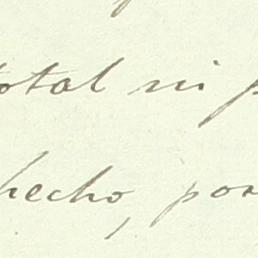 total ni p
hecho, por